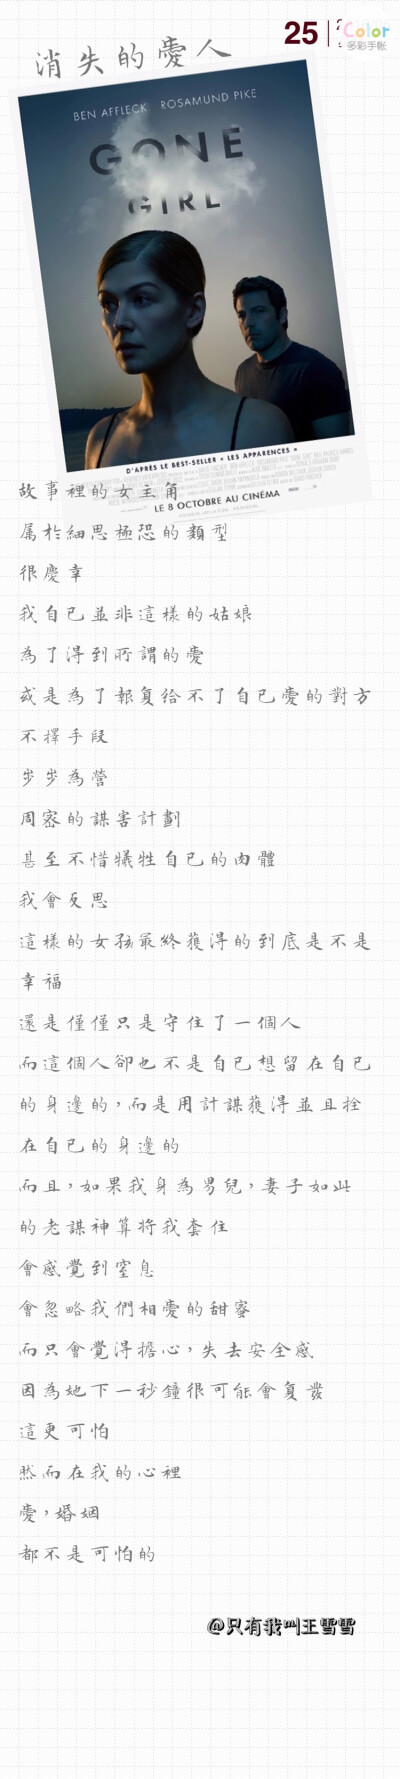 25
Color
多彩手帐
消失的愛人
BEN AFFLECK ROSAMUND PIKE
GONE
GIRL
D'APRÈS LE BEST-SELLER « LES APPARENCES »
LE 8 OCTOBRE AU CINÉMA
故事裡的女主角
属於細思極恐的類型
很慶幸
我自己並非這樣的姑娘
為了得到所謂的愛
或是為了報复给不了自己愛的對方
不擇手段
步步為營
周密的謀害計劃
甚至不惜犧牲自己的肉體
我會反思
這樣的女孩最終獲得的到底是不是
幸福
還是僅僅只是守住了一個人
而這個人卻也不是自己想留在自己
的身邊的，而是用計謀獲得並且拴
在自己的身邊的
而且，如果我身為男兒，妻子如此
的老謀神算将我套住
會感覺到窒息
會忽略我們相愛的甜蜜
而只會覺得擔心，失去安全感
因為她下一秒鐘很可能會复發
這更可怕
然而在我的心裡
愛，婚姻
都不是可怕的
@只有我叫王雪雪